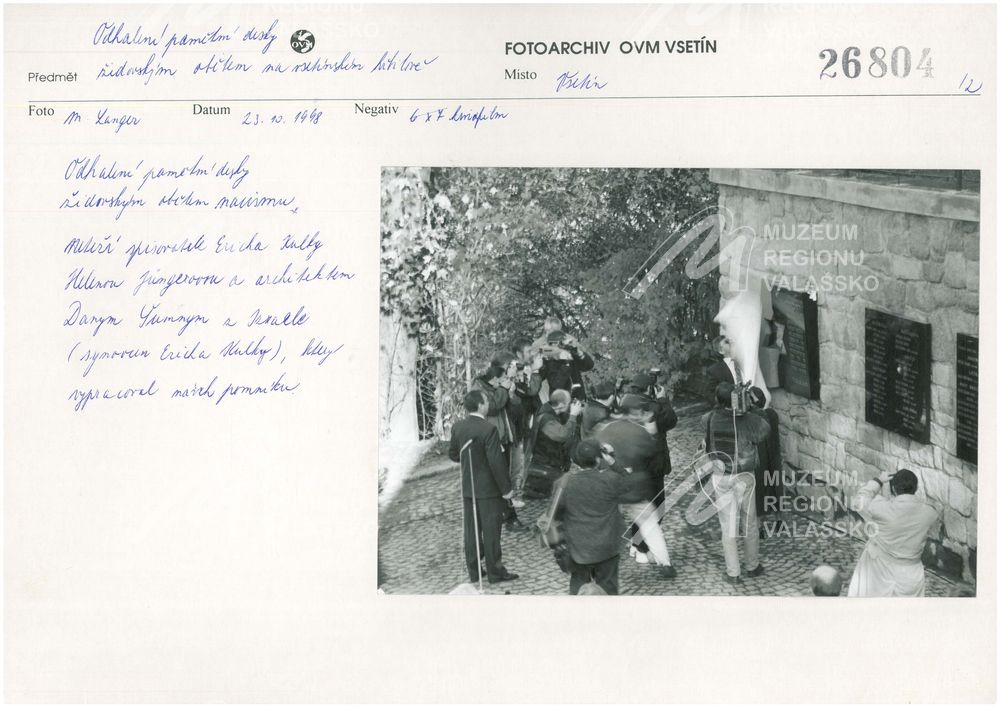 Předmět Odhalení pamětní desky
židovským obětem na vsetínském hřbitově
OVM
FOTOARCHIV OVM VSETÍN
Místo Vsetín
26804
/2
Foto M. Langer Datum 23.10.1998 Negativ 6x7 kinofilm
Odhalení pamětní desky
židovským obětem nacismu
neteří spisovatele Ericha Kulky
Helenou Jüngerovou a architektem
Danym Šumnym z Izraele
(synovcem Ericha Kulky), který
vypracoval návrh pomníku.
MUZEUM
REGIONU
VALAŠSKO
MUZEUM
REGIONU
VALAŠSKO